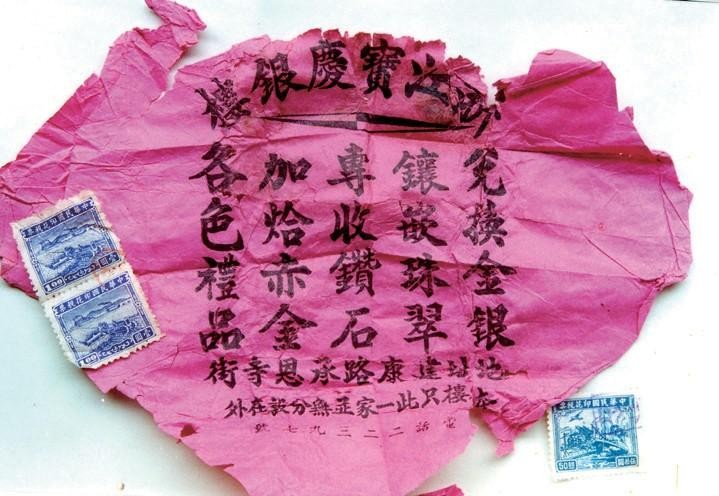 之寶慶銀樓
兌換金銀
鑲嵌珠翠
專收鑽石
加烚赤金
各色禮品
地址建康路承恩寺街
樓只此一家並無分設在外
電話二二三九七號
中華民國印花稅票
100
中華民國印花稅票
100
中華民國印花稅票
50